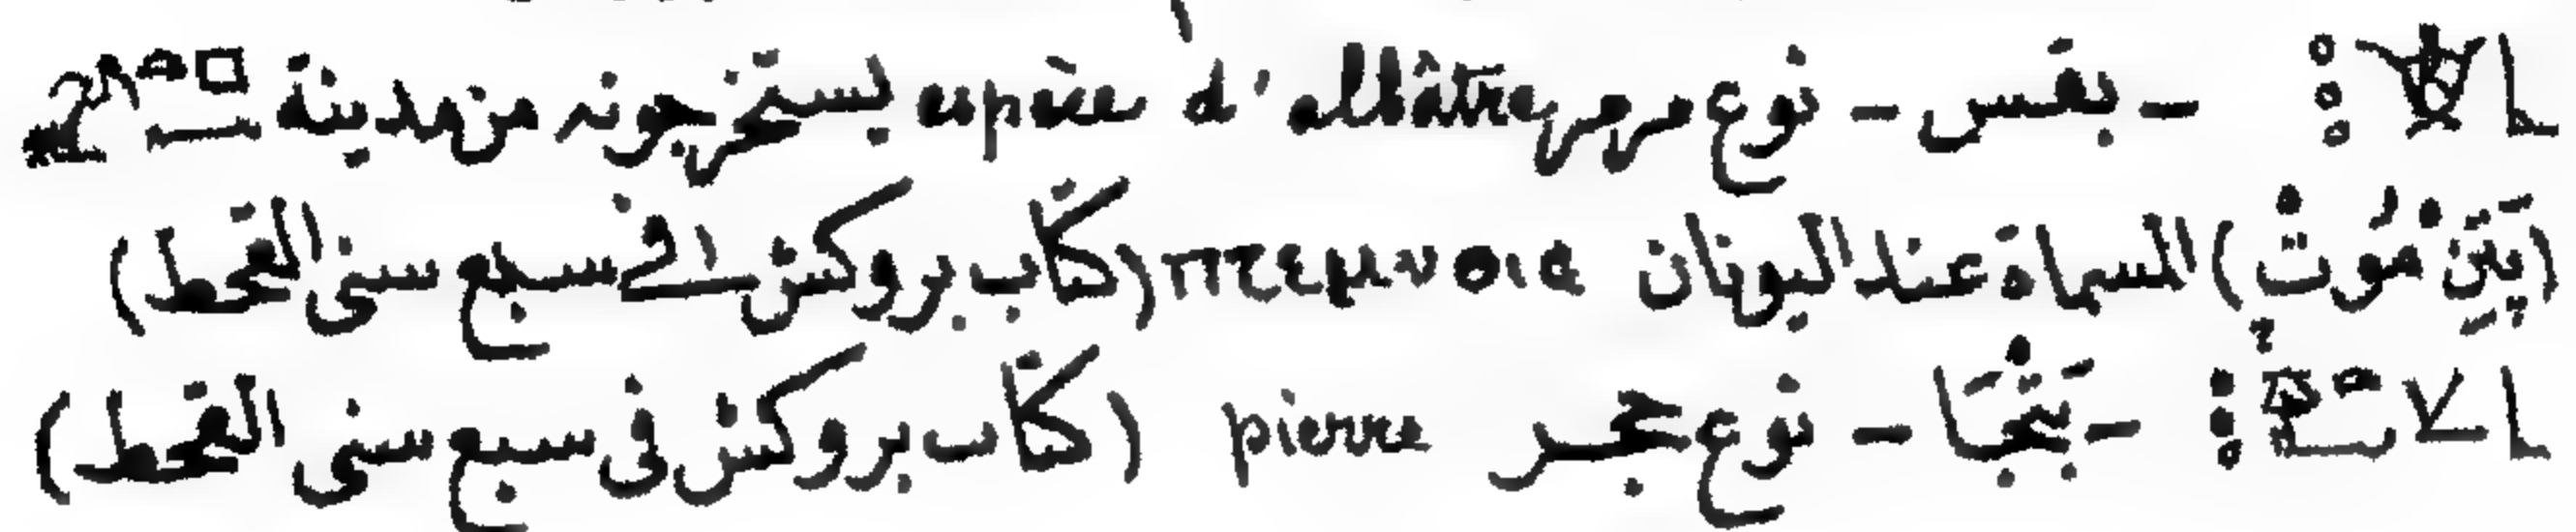 - بقس - نوع مرمر espèce d'albâtre يستخرجونه من مدينة
(پتن موث) المسماة عند اليونان πτεμνοια (كتاب بروكش في سبع سنى القحط)
- بثجبا - نوع حجر pierre (كتاب بروكش فى سبع سنى القحط)